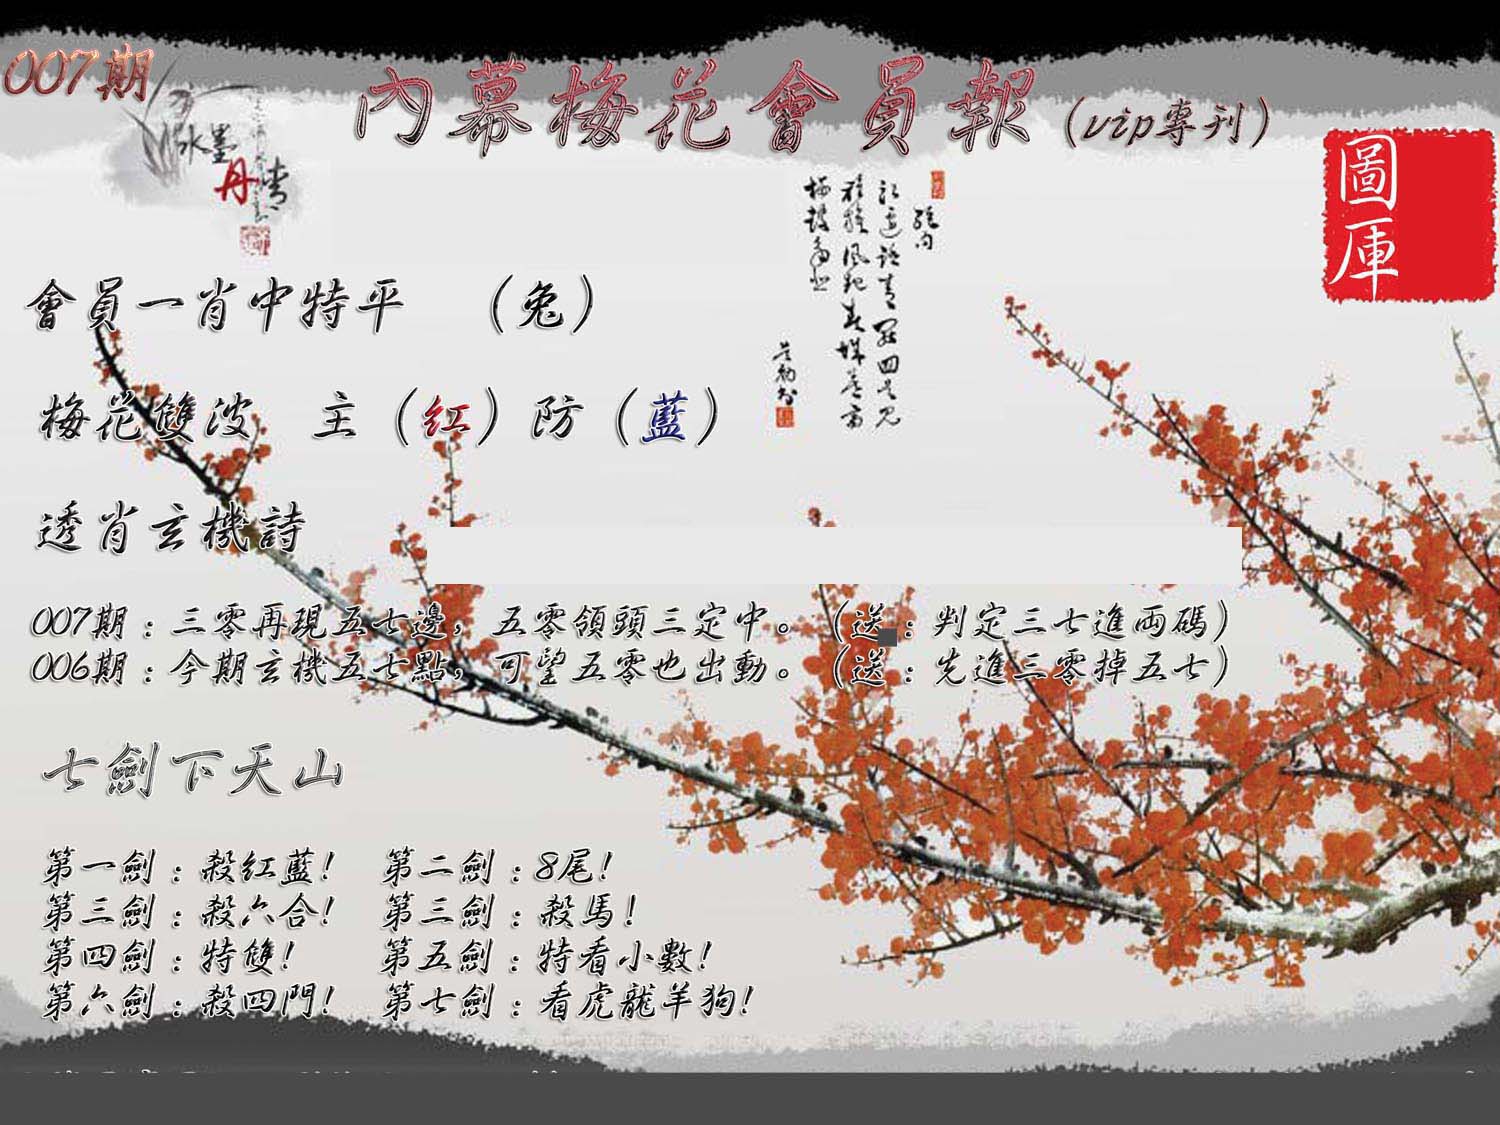 007期
內幕梅花會員報（vip專刊）
水墨
丹青
圖庫
會員一肖中特平　（兔）
梅花雙波　主（红）防（藍）
透肖玄機詩
007期：三零再現五七邊，五零領頭三定中。（送：判定三七進両碼）
006期：今期玄機五七點，可望五零也出動。（送：先進三零掉五七）
七劍下天山
第一劍：殺紅藍！　第二劍：8尾！
第三劍：殺六合！　第三劍：殺馬！
第四劍：特雙！　第五劍：特看小數！
第六劍：殺四門！　第七劍：看虎龍羊狗！